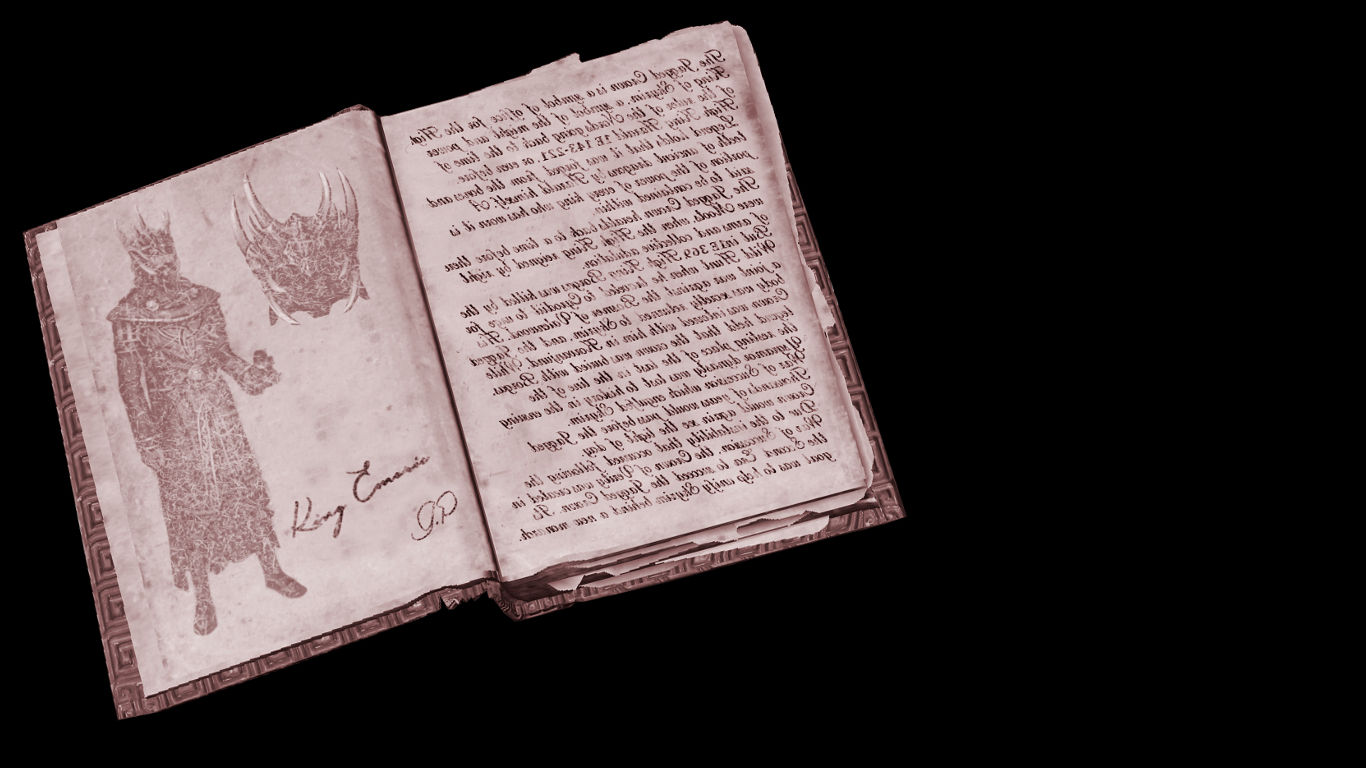 King Emeric
The Jagged Crown is a symbol of office for the High
King of Skyrim, a symbol of the might and power
of the ruler of the Nords going back to the time of
High King Harald 1E 143-221, or even before.
Legend holds that it was forged from the bones and
teeth of ancient dragons by Harald himself. A
portion of the power of every king who has worn it is
said to be contained within.
The Jagged Crown heralds back to a time before there
were Moots, when the High King reigned by right
of arms and collective adulation.
But in 1E 369, High King Borgas was killed by the
Wild Hunt when he traveled to to urge for
a joint war against the Bosmer of Valenwood. His
body was readily returned to Skyrim, and the Jagged
Crown was interred with him in While
legend held that the crown was buried with Borgas,
the resting place of the last in the line of the
Ysgramor dynasty was lost to history in the ensuing
War of Succession which engulfed Skyrim.
Thousands of years would pass before the Jagged
Crown would again see the light of day.
Due to the instability that occurred following the
War of Succession, the Crown of Verity was created in
the Second Era to succeed the Jagged Crown. Its
goal was to help unify Skyrim behind a new monarch.